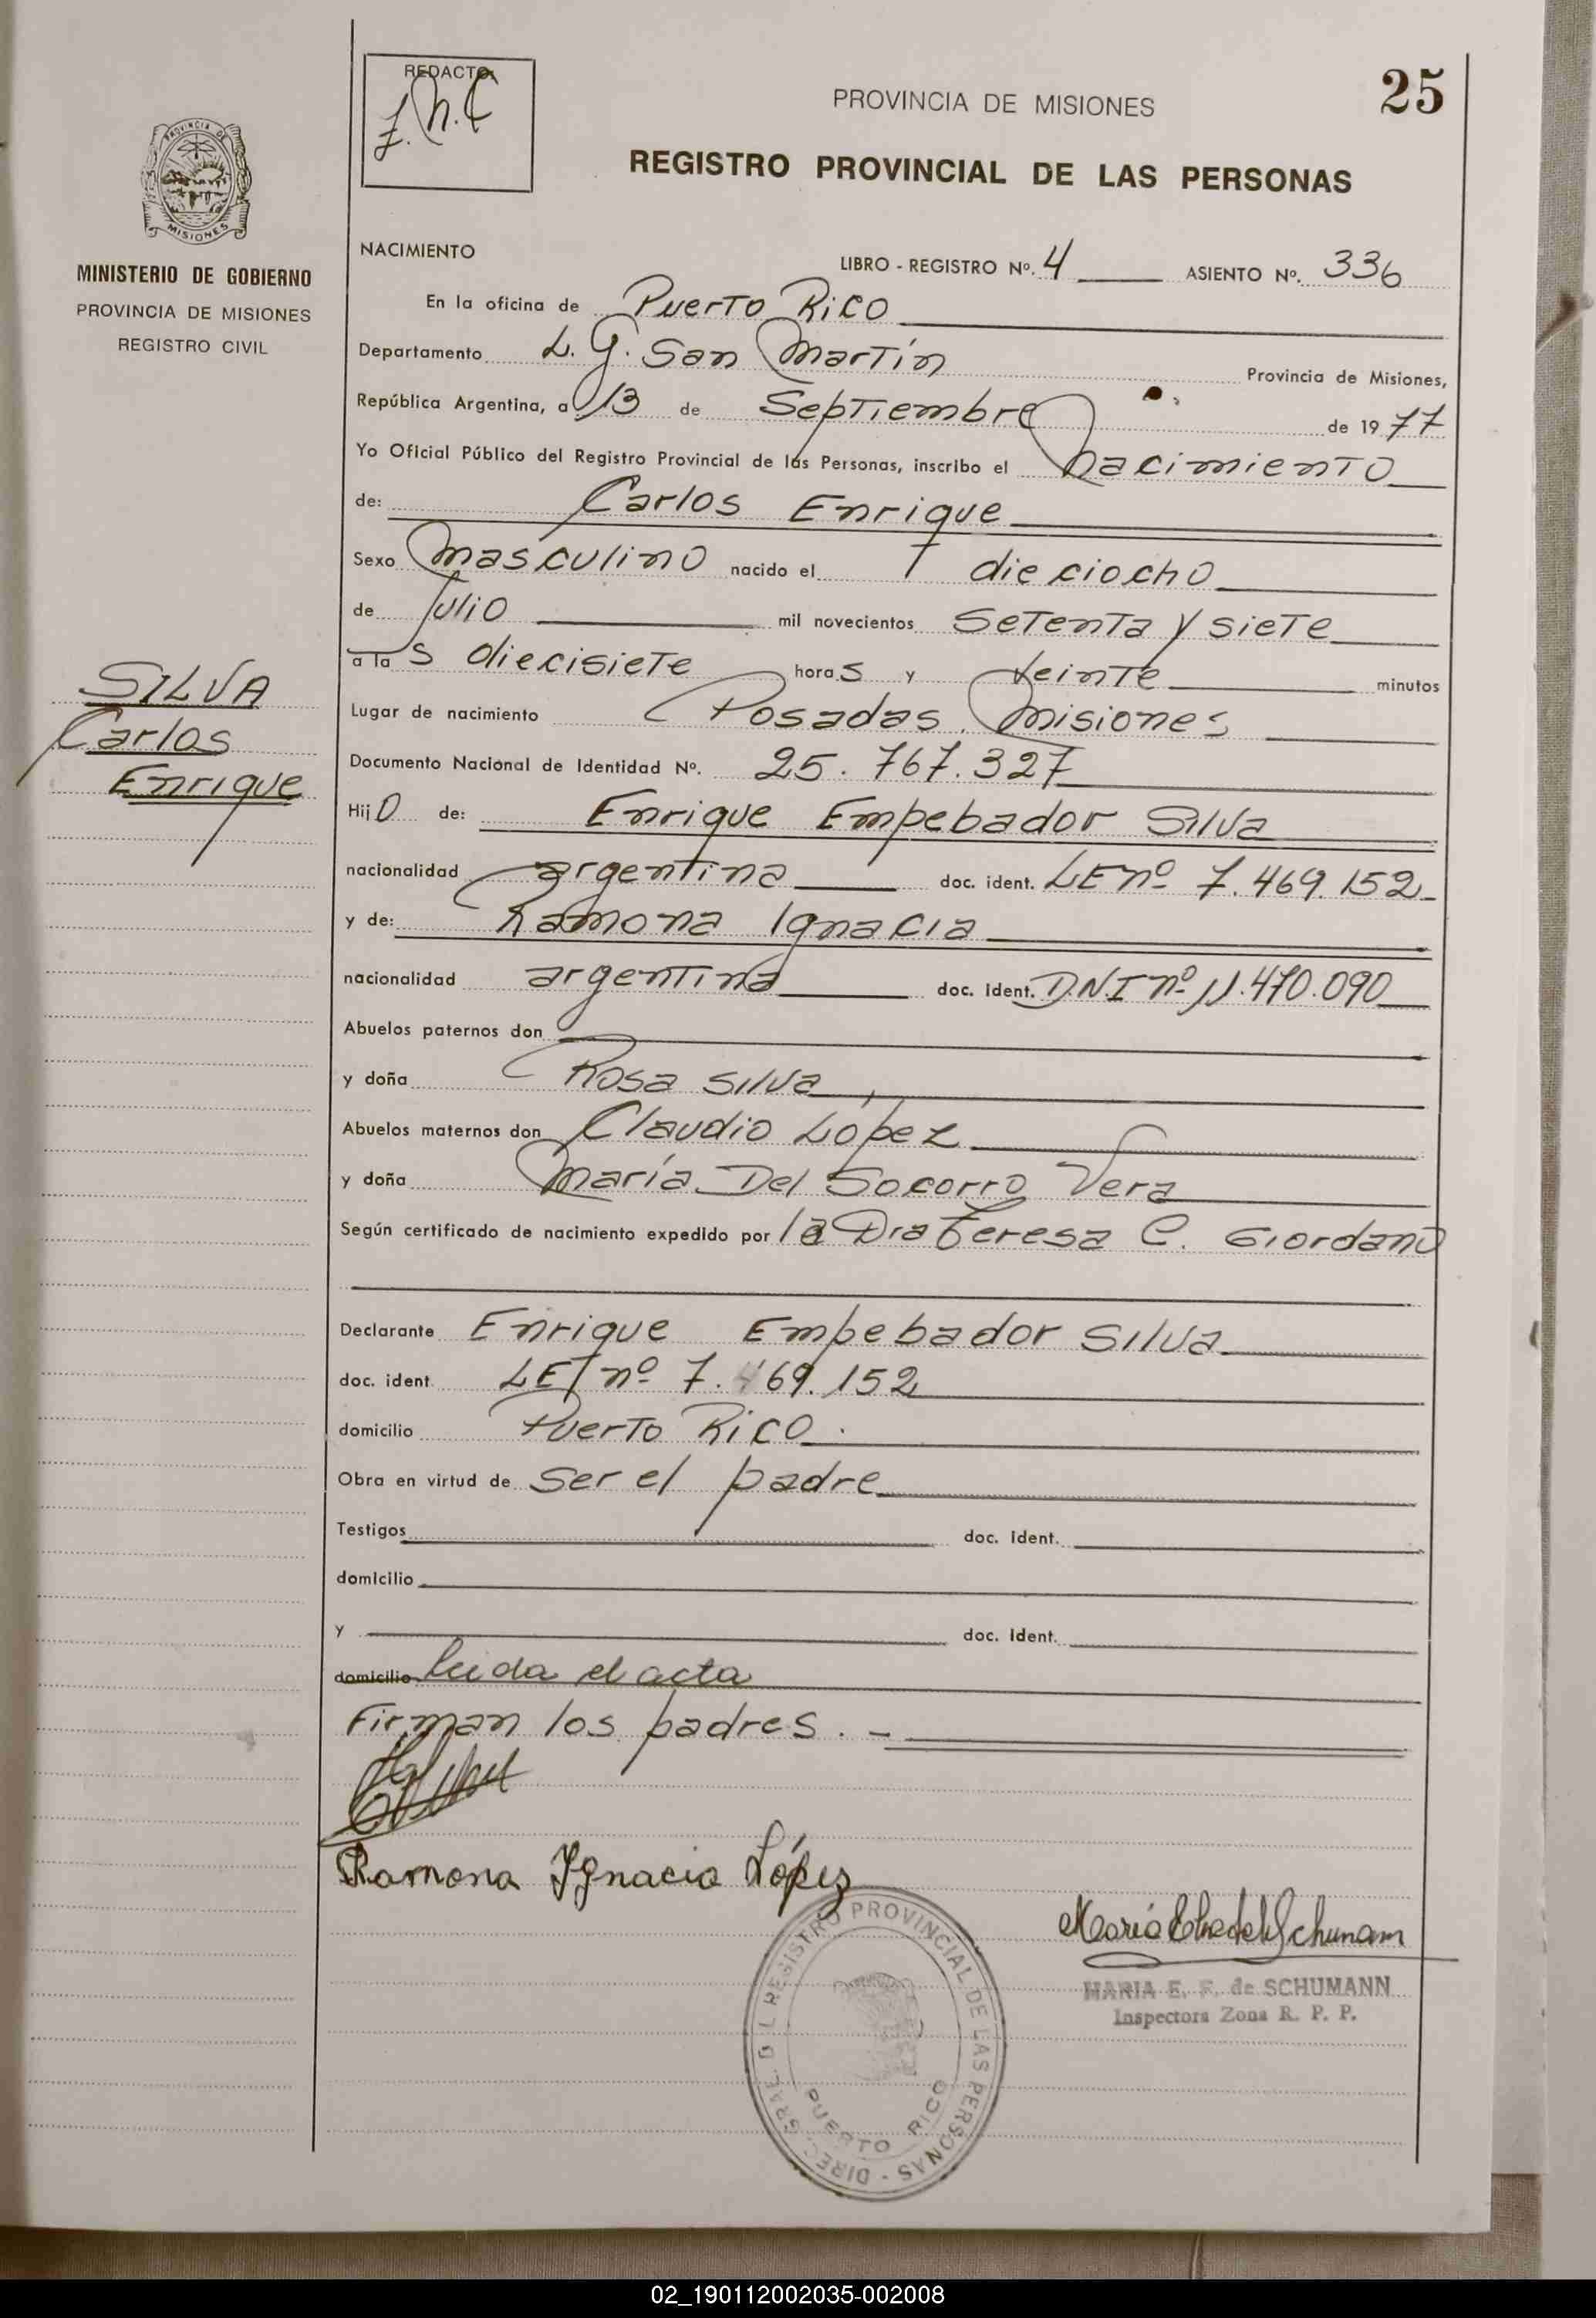 REDACTO:
PROVINCIA DE MISIONES
25
REGISTRO PROVINCIAL DE LAS PERSONAS
PROVINCIA DE
MISIONES
MINISTERIO DE GOBIERNO
PROVINCIA DE MISIONES
REGISTRO CIVIL
NACIMIENTO LIBRO - REGISTRO Nº. 4 ASIENTO Nº. 336
En la oficina de Puerto Rico
Departamento L. G. San Martín Provincia de Misiones,
República Argentina, a 13 de Septiembre de 1977
Yo Oficial Público del Registro Provincial de las Personas, inscribo el nacimiento
de: Carlos Enrique
Sexo masculino nacido el dieciocho
de Julio mil novecientos setenta y siete
a las diecisiete horas y veinte minutos
SILVA
Carlos
Enrique
Lugar de nacimiento Posadas. Misiones
Documento Nacional de Identidad Nº. 25.767.327
Hijo de: Enrique Empebador Silva
nacionalidad argentina doc. ident. LE nº 7.469.152
y de: Ramona Ignacia
nacionalidad argentina doc. ident. D.N.I nº 11.470.090
Abuelos paternos don
y doña Rosa Silva
Abuelos maternos don Claudio López
y doña María Del Socorro Vera
Según certificado de nacimiento expedido por la Dra Teresa C. Giordano
Declarante Enrique Empebador Silva
doc. ident. LE nº 7.469.152
domicilio Puerto Rico.
Obra en virtud de ser el padre
Testigos doc. ident.
domicilio
y doc. ident.
domicilio leida el acta
Firman los padres. -
Ramona Ignacia López
MARIA E. F. de SCHUMANN
Inspectora Zona R. P. P.
DIREC. GRAL. DEL REGISTRO PROVINCIAL DE LAS PERSONAS -
PUERTO RICO
02_190112002035-002008